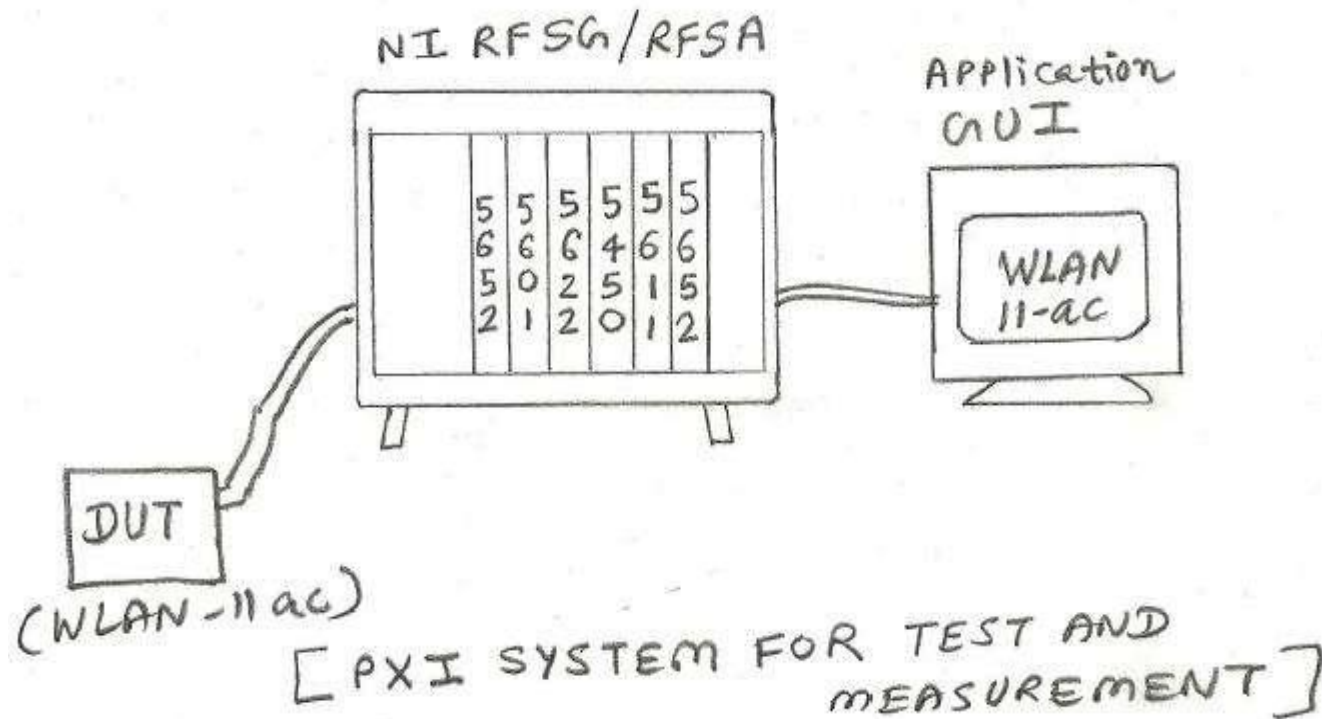 NI RFSG/RFSA
Application
GUI
5 5 5 5 5 5
6 6 6 4 6 6
5 0 2 5 1 5
2 1 2 0 1 2
WLAN
11-ac
DUT
(WLAN-11ac)
[PXI SYSTEM FOR TEST AND
MEASUREMENT]